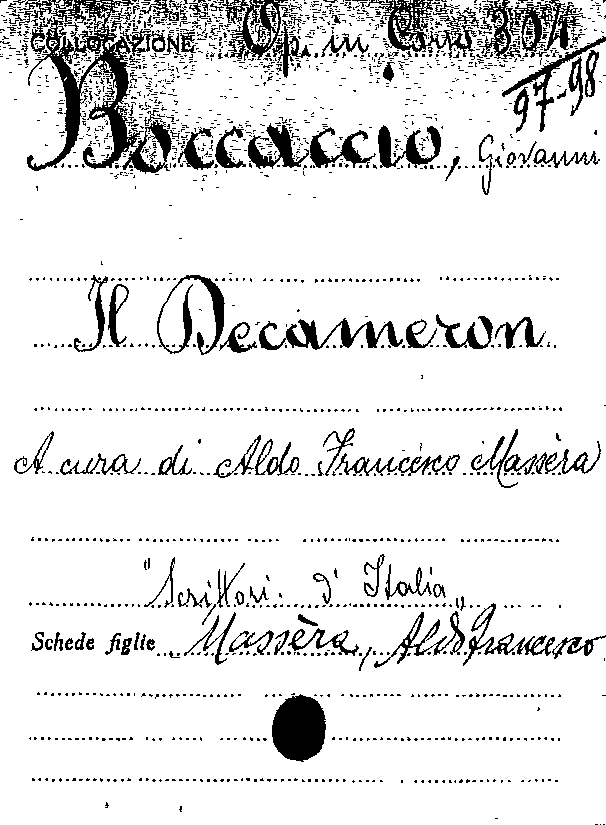 COLLOCAZIONE Op. in Corso 304
97-98
Boccaccio, Giovanni
Il Decameron
A cura di Aldo Francesco Massèra
"Scrittori d'Italia„
Schede figlie Massèra, Aldo Francesco